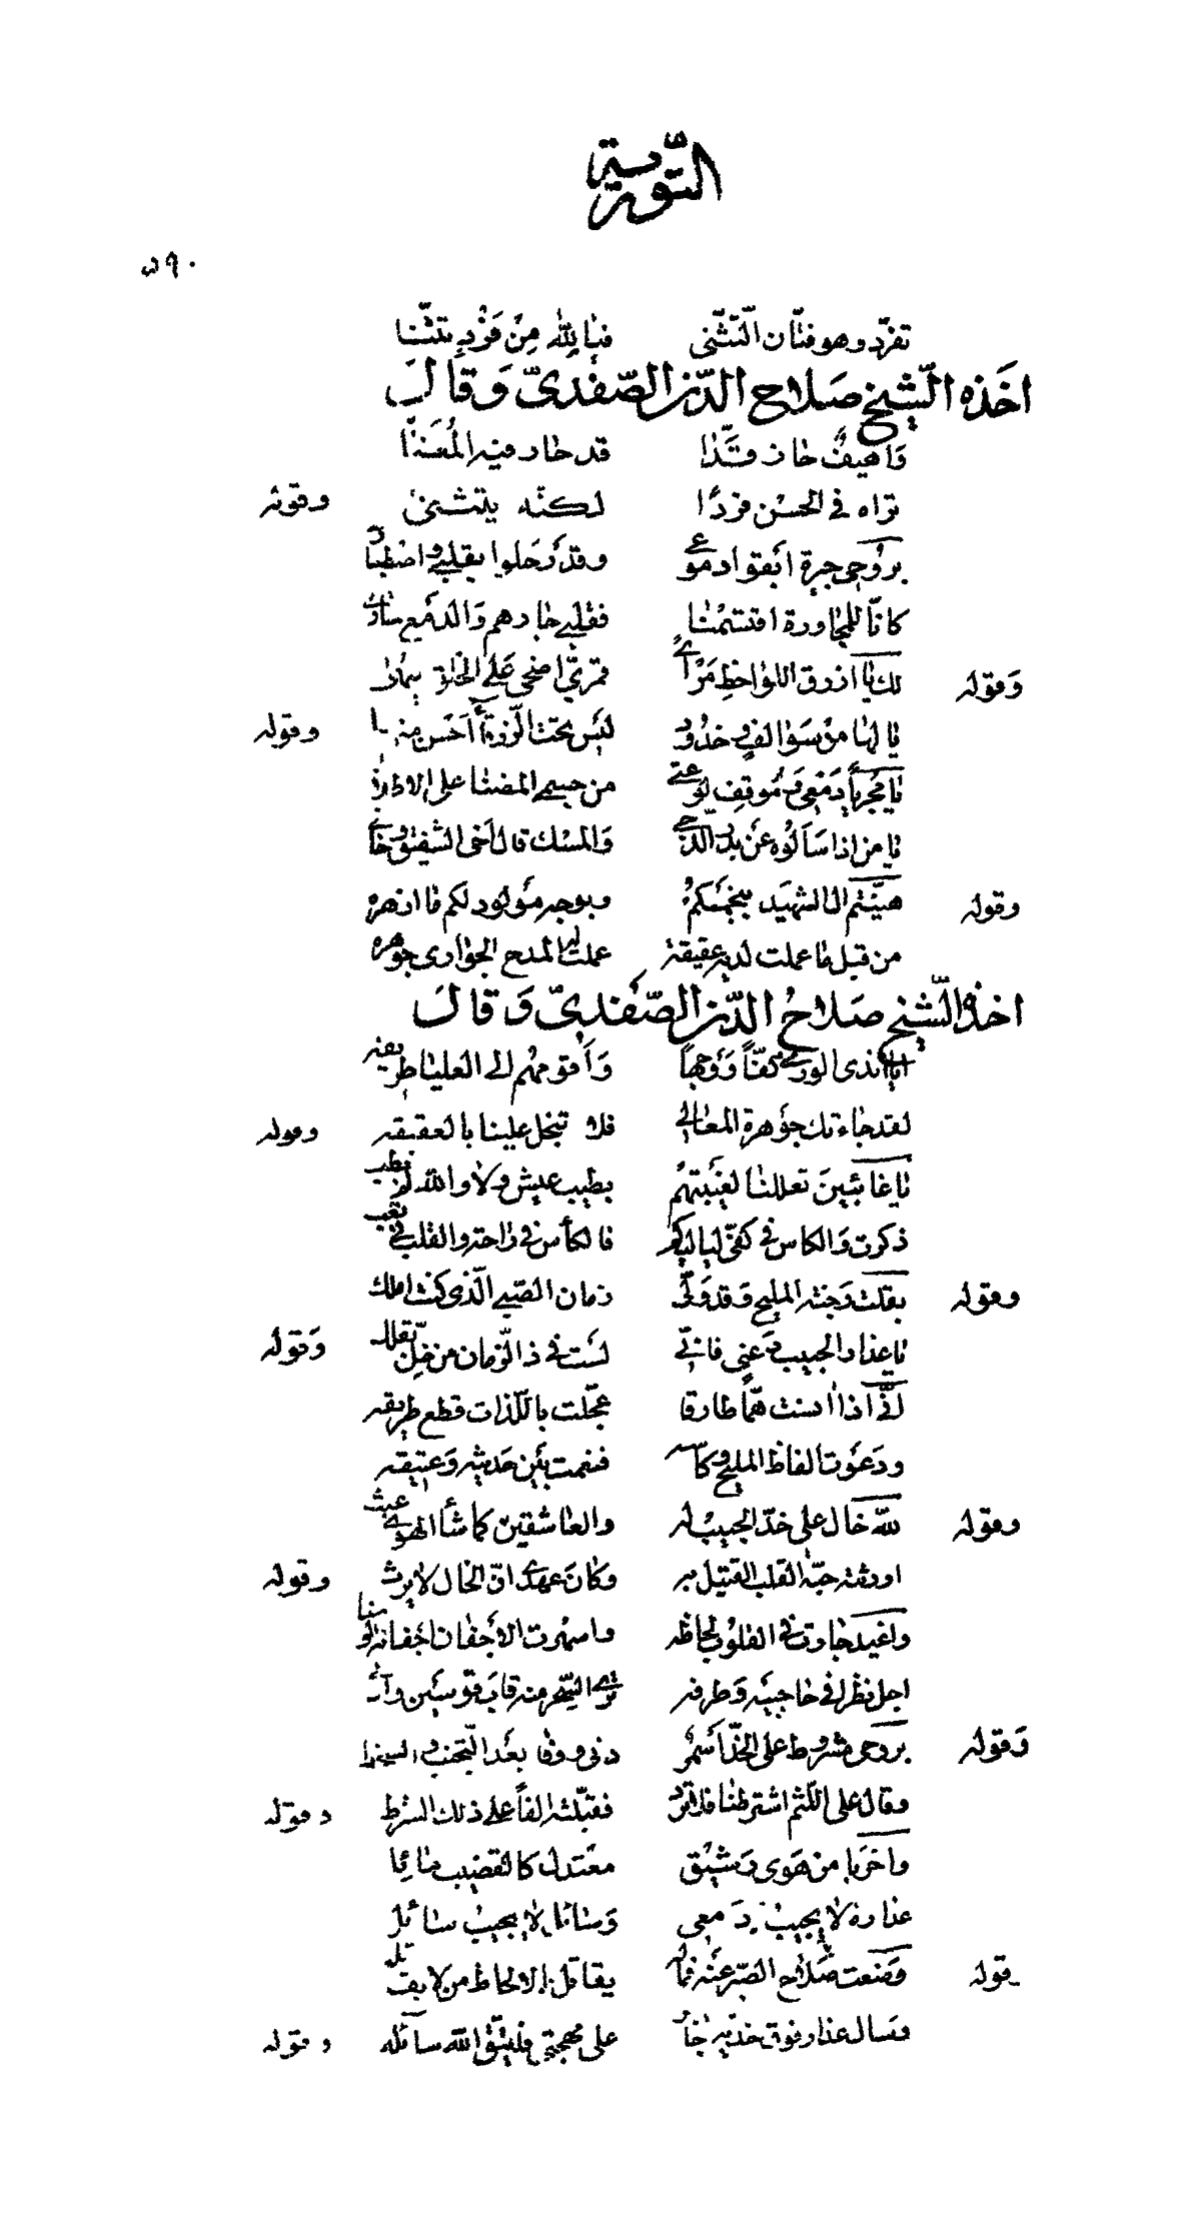 التورية
٥٩٠
تفرّد وهو فتّان التّثنّى فيا لله من فرد تثنّا
اخذه الشّيخ صلاح الدّين الصّفديّ وقال
واهيف حاز قدّا قد حار فيه المعنّا
تراه في الحسن فردًا لكنّه يتثنّى وقوله
بروحى جيرة ابقوا دموعى وقد رحلوا بقلبي واصطبارى
كانّا للمجاورة اقتسمنا فقلبي جارهم والدمع جارى
وقوله لك يا ازرق اللواحظ مرأى قمرىّ اضحى على الخلق
يا لها من سوالف وخدود ليس تحت الزرقاء احسن منها وقوله
يا مجريا دمعى وموقف لوعتى من جسمي المضنا على الاطلال
يا من اذا سألوه عن بدر الدّجى والمسك قال اخى الشقيق وخالى
وقوله هنّيتم ال الشهيد بنجمكم وبوجه مولود لكم ما ازهره
من قبل ما عملت لديه عقيقة عملت له المدح الجوارى جوهره
اخذه الشّيخ صلاح الدّين الصّفديّ وقال
ايا اندى الورى كفّاً ووجهاً واقومهم الى العليا طريقه
لقد جاءتك جوهرة المعالى فلا تبخل علينا بالعقيقه وقوله
يا غائبين تعللنا لغيبتهم بطيب عيش ولا والله لم يطب
ذكرت والكاس في كفّى لياليكم فالكأس في راحة والقلب في تعب
وقوله بقلت وجنة المليح وقد ولّى زمان الصّبى الّذى كنت املك
يا عذار الحبيب دعنى فانّى لست في ذا الزمان من خلّ بقلك وقوله
انّى اذا انست همّاً طارقا عجّلت باللّذات قطع طريقه
ودعوت الفاظ المليح وكأسه فنعمت بين حديثه وعتيقه
وقوله لله خال على خدّ الحبيب له والعاشقين كما شاء الهوى عبث
اورثته حبّة القلب القتيل به وكان عهدى انّ الخال لا يرث وقوله
واغيد جارت في القلوب لحاظه واسهرت الاجفان اجفانه الوسنا
اجل نظراً في حاجبيه وطرفه ترى السّحر منه قاب قوسين وادنى
وقوله بروحى مشروط على الخدّ اسمر دنى ووفا بعد التّجنّب والسخط
وقال على اللّثم اشترطنا فلا تزد فقبّلته الفاً على ذلك الشرط وقوله
واحربا من هوى رشيق معتدل كالقضيب مائلا
عذاره لا يجيب دمعى وسائلا لا يجيب سائلا
وقوله وضعت سلاح الصّبر عنه فما له يقاتل بالالحاظ من لا يقاتله
وسال عذار فوق خدّيه جائر على مهجتى فليتّق الله سائله وقوله